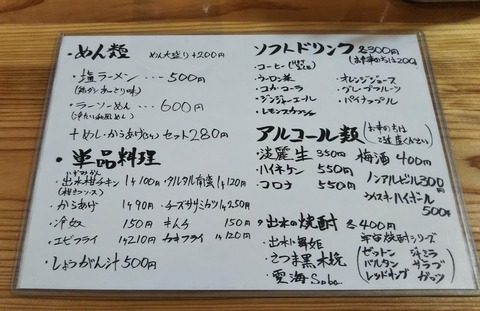 ・めん類 めん大盛り+200円
・塩ラーメン・・・500円
・ラーソーめん・・・600円
+めし・からあげ セット280円
・単品料理
・出水柑チキン 1ヶ100円
・タルタル南蛮 1ヶ120円
・からあげ 1ヶ90円
・チーズササミカツ 1ヶ250円
・冷奴 150円
・キムチ 150円
・エビフライ 1ヶ210円
・カキフライ 1ヶ120円
・しょうがん汁 500円
ソフトドリンク 各300円
・コーヒー
・ウーロン茶
・コカ・コーラ
・ジンジャーエール
・レモンスカッシュ
・オレンジジュース
・グレープフルーツ
・パイナップル
アルコール類
・淡麗生 350円
・ハイネケン 550円
・コロナ 550円
梅酒 400円
ノンアルビール300円
ウイスキーハイボール 500円
・出水の焼酎 各400円
・出水に舞姫
・さつま黒木挽
・愛海
宇宙焼酎シリーズ
ゼットン ジャミラ
バルタン ザラブ
レッドキング ガッツ